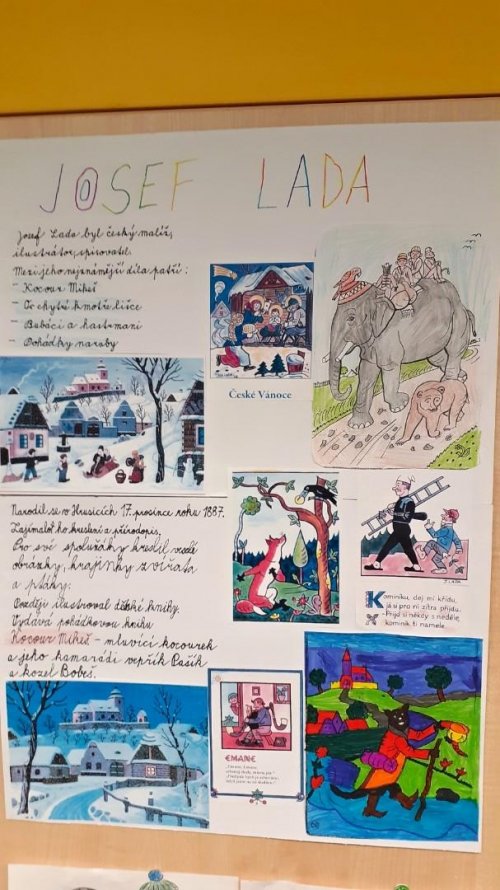 JOSEF LADA
Josef Lada byl český malíř,
ilustrátor, spisovatel.
Mezi jeho nejznámější díla patří:
- Kocour Mikeš
- O chytré kmotře lišce
- Bubáci a hastrmani
- Pohádky naruby
České Vánoce
Narodil se v Hrusicích 17. prosince roku 1887.
Zajímalo ho kreslení a přírodopis.
Pro své spolužáky kreslil
obrázky, krajinky zvířata
a ptáky.
Později ilustroval dětské knihy.
Vydává pohádkovou knihu
Kocour Mikeš - mluvící kocourek
a jeho kamarádi vepřík Pašík
a kozel Bobeš.
J. LADA
Kominíku, dej mi křídu,
já si pro ni zítra přijdu.
Přijď si někdy v neděli,
kominík ti namele.
EMANE